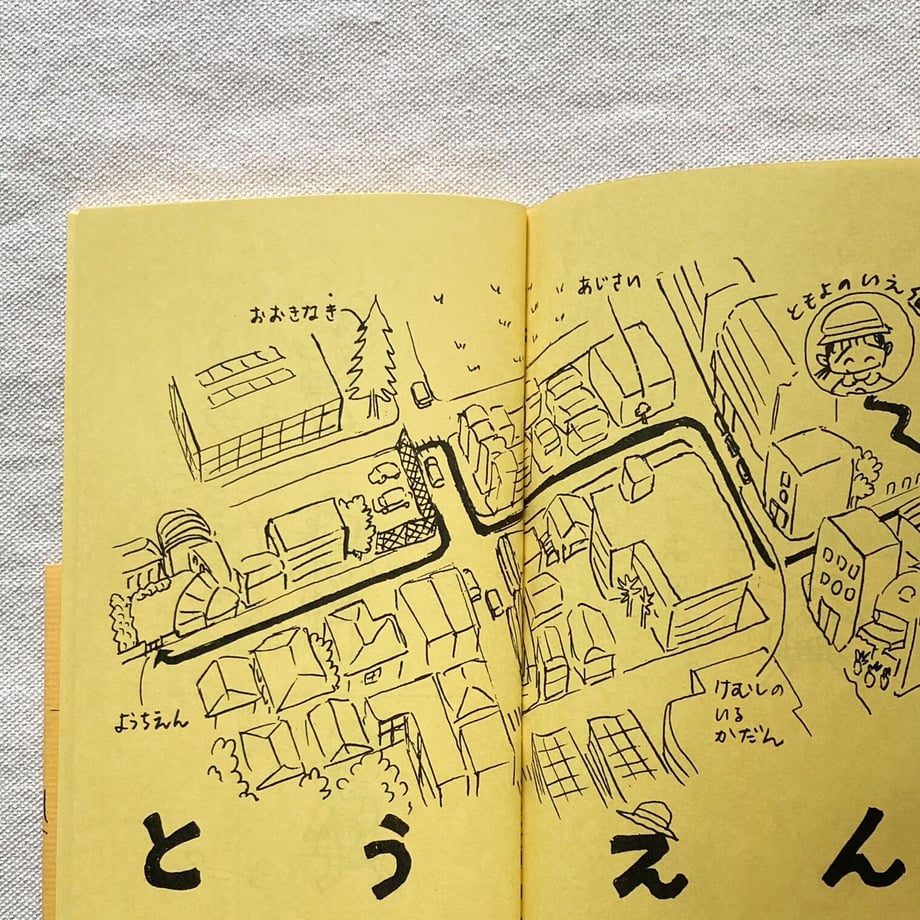 おおきなき
あじさい
ともよのいえ
ようちえん
けむしの
いる
かだん
とうえん